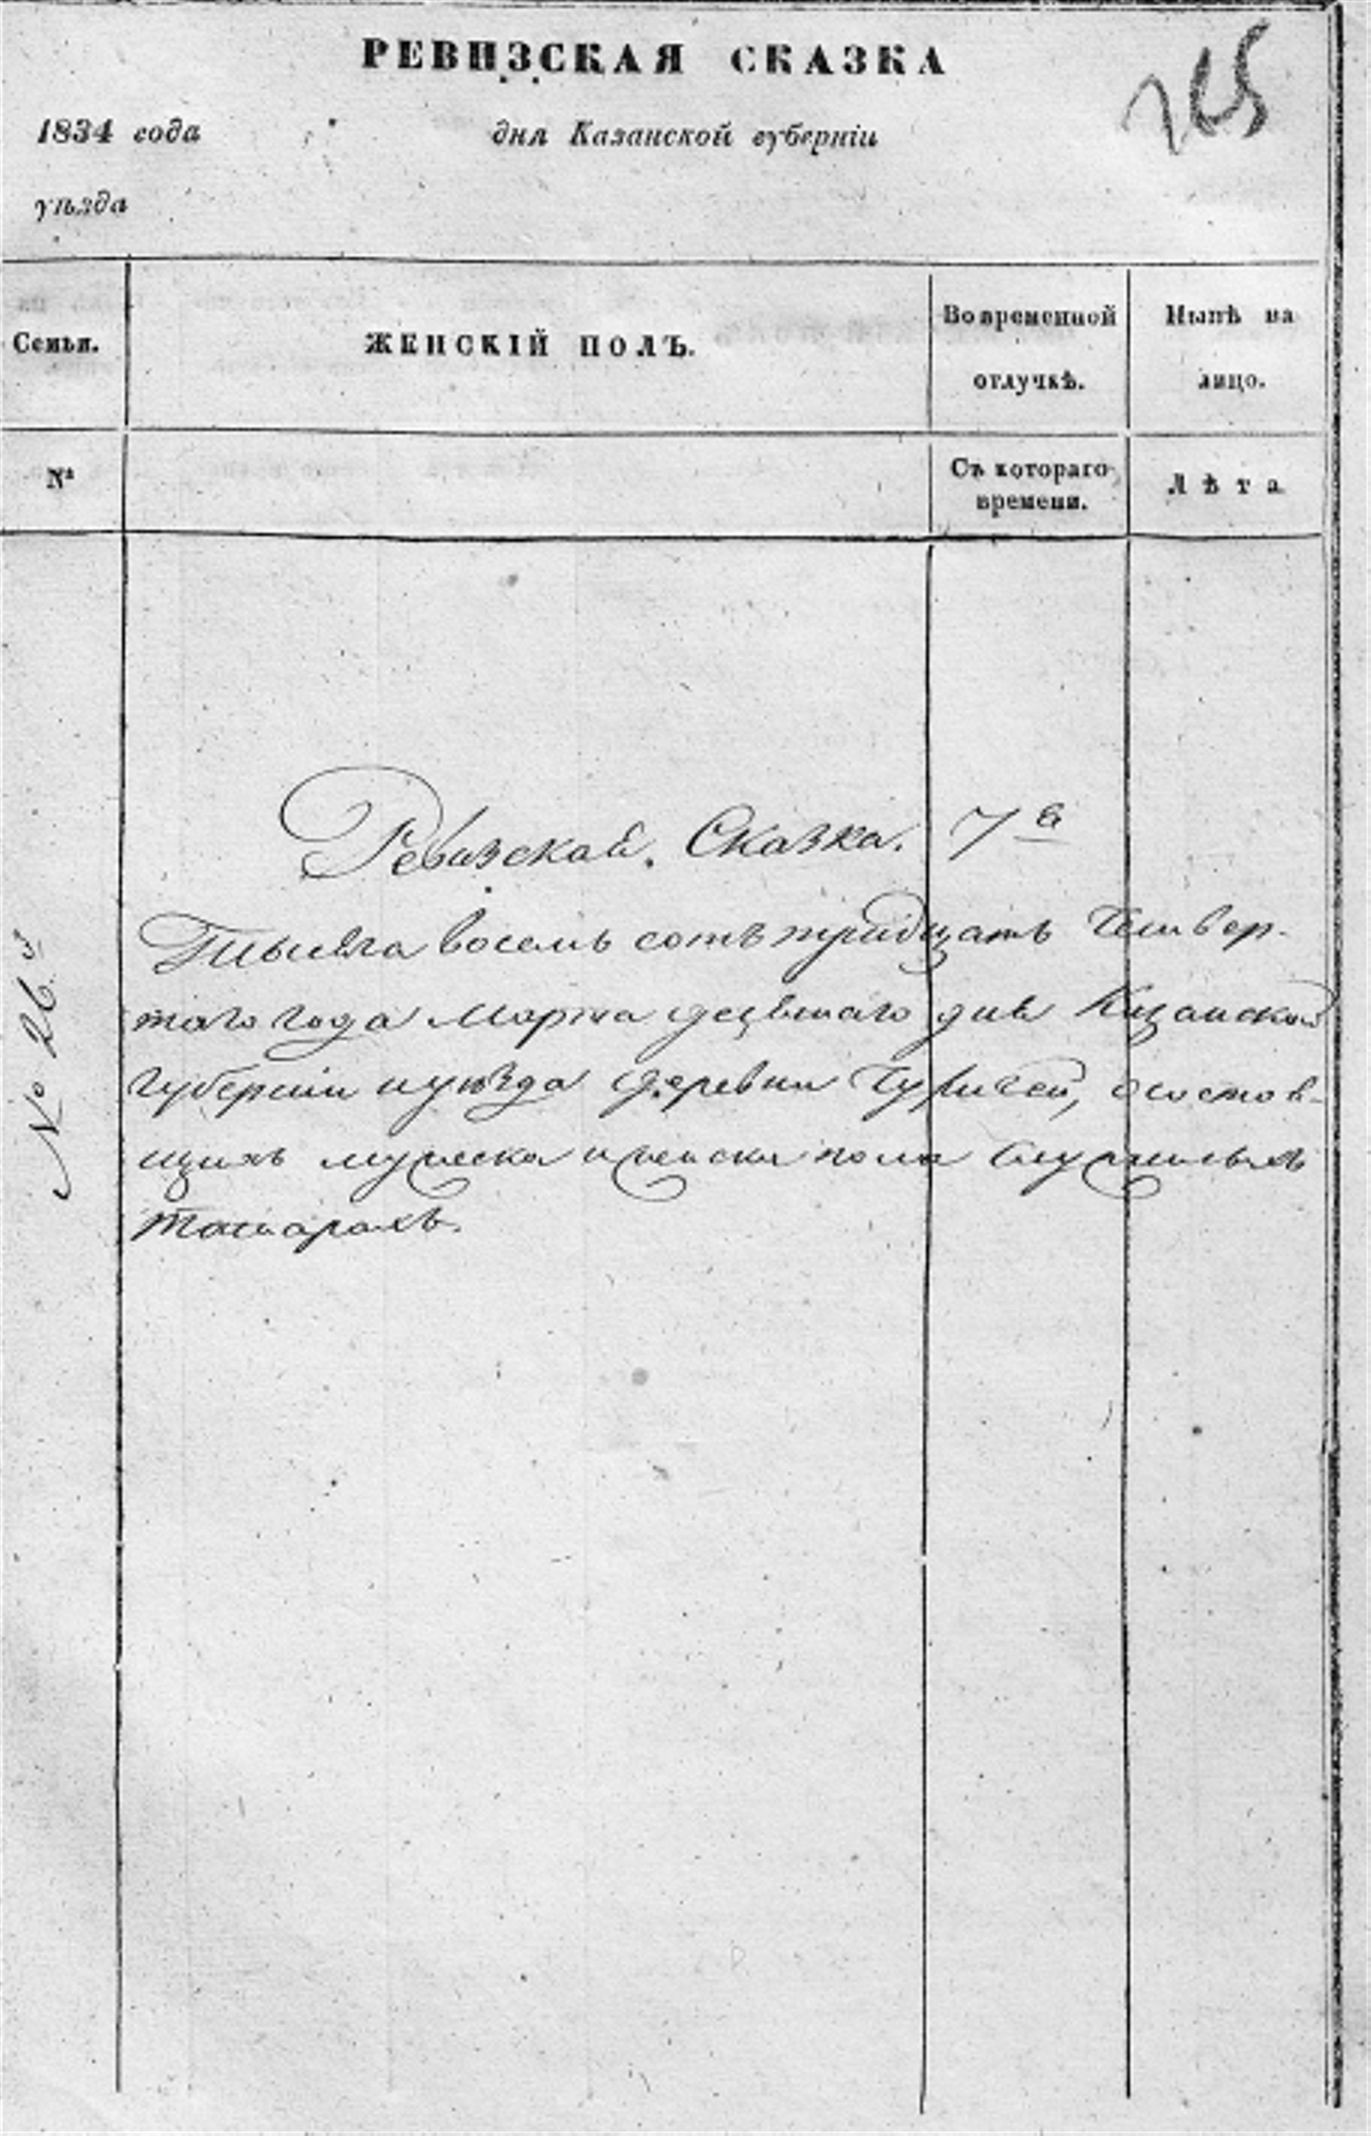 РЕВИЗСКАЯ СКАЗКА
265
1834 года дня Казанской губерніи
уѣзда
Семьи. ЖЕНСКІЙ ПОЛЪ. Во временной отлучкѣ. Нынѣ на лицо.
№ Съ котораго времени. Лѣта
Ревизской. Сказка. 7я
Тысяча восемь сотъ тридцать Четвер-
таго года Марта десятаго дня Казанской
губерніи и уѣзда деревни о состоя-
щихъ мужеска и женска пола служилыхъ
татарахъ.
№ 26й